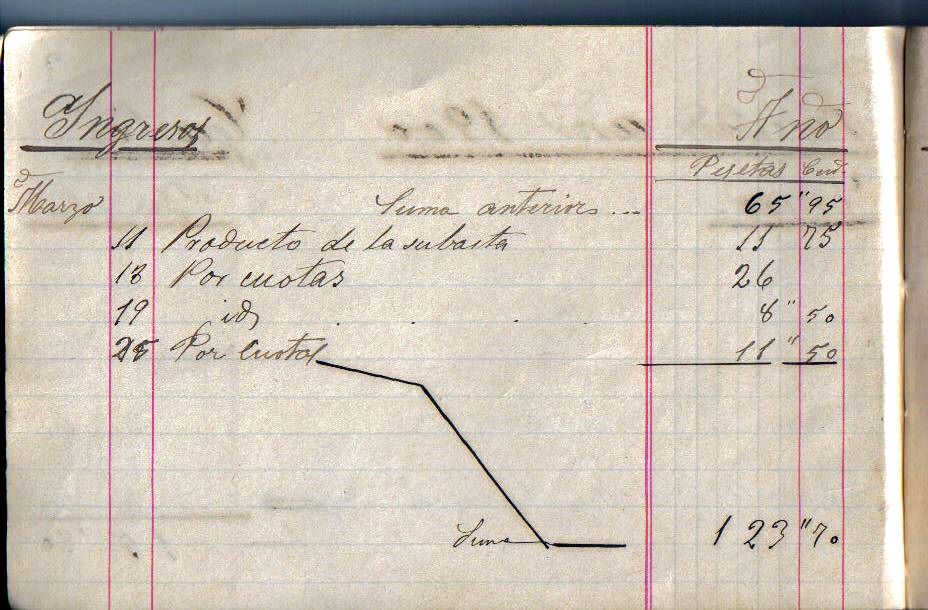 Ingresos Año
Pesetas Cent.
Marzo Suma anterior ... 65 " 95
11 Producto de la subasta 11 75
18 Por cuotas 26
19 id . . . 8 " 50
25 Por cuotas 11 " 50
Suma 123 " 70